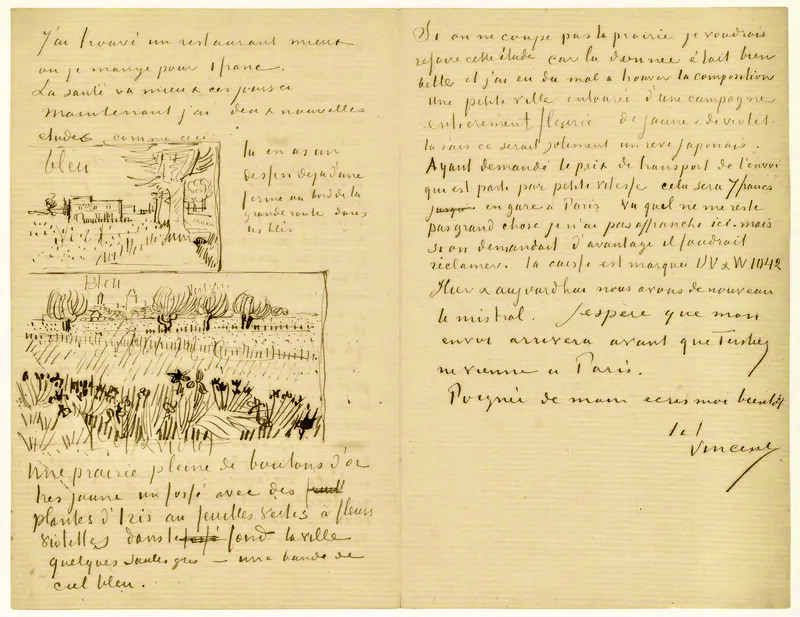 J'ai trouvé un restaurant mieux
ou je mange pour 1 franc.
La santé va mieux ces jours ci
Maintenant j'ai deux nouvelles
etudes comme ceci:
bleu
tu en as un
dessin dejà d'une
ferme au bord de la
grande route dans
les blés
Bleu
Violet
Une prairie pleine de boutons d'or
tres jaune un fossé avec des
plantes d'Iris aux feuilles vertes à fleurs
violettes dans le fond la ville
quelques saules gris – une bande de
ciel bleu.
Si on ne coupe pas la prairie je voudrais
refaire cette étude car la donnee était bien
belle et j'ai eu du mal a trouver la composition
Une petite ville entourée d'une campagne
entierement fleurie de jaune & de violet.
tu sais ce serait joliment un reve japonais.
Ayant demandé le prix de transport de l'envoi
qui est parti par petite vitesse cela sera 7 francs
jusqu' en gare à Paris Vu quel ne me reste
pas grand chose je n'ai pas affranchi ici. mais
si on demandait d'avantage il faudrait
réclamer. la caisse est marquée VV & W 1042
Hier & aujourd'hui nous avons de nouveau
le mistral. J'espère que mon
envoi arrivera avant que Tersteeg
ne vienne a Paris.
Poignée de main ecris moi bientôt
t. à t.
Vincent